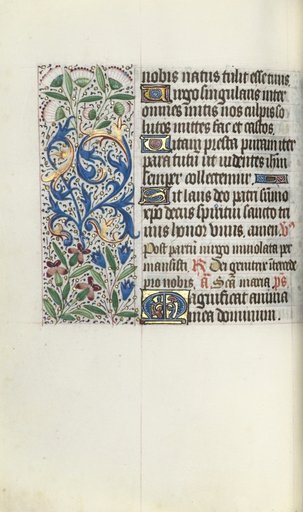 nobis natus tulit esse tuus
Virgo singularis inter
omnes mitis nos culpis so
lutos mites fac et castos.
Vitam presta puram iter
para tutum ut videntes ihm
semper colletemur.
Sit laus deo patri summo
xpo decus spiritui sancto tri
nus honor unus. amen.
Post partum virgo inviolata per
mansisti. R Dei genitrix intercede
pro nobis. a Sca maria ps
Magnificat anima
mea dominum.